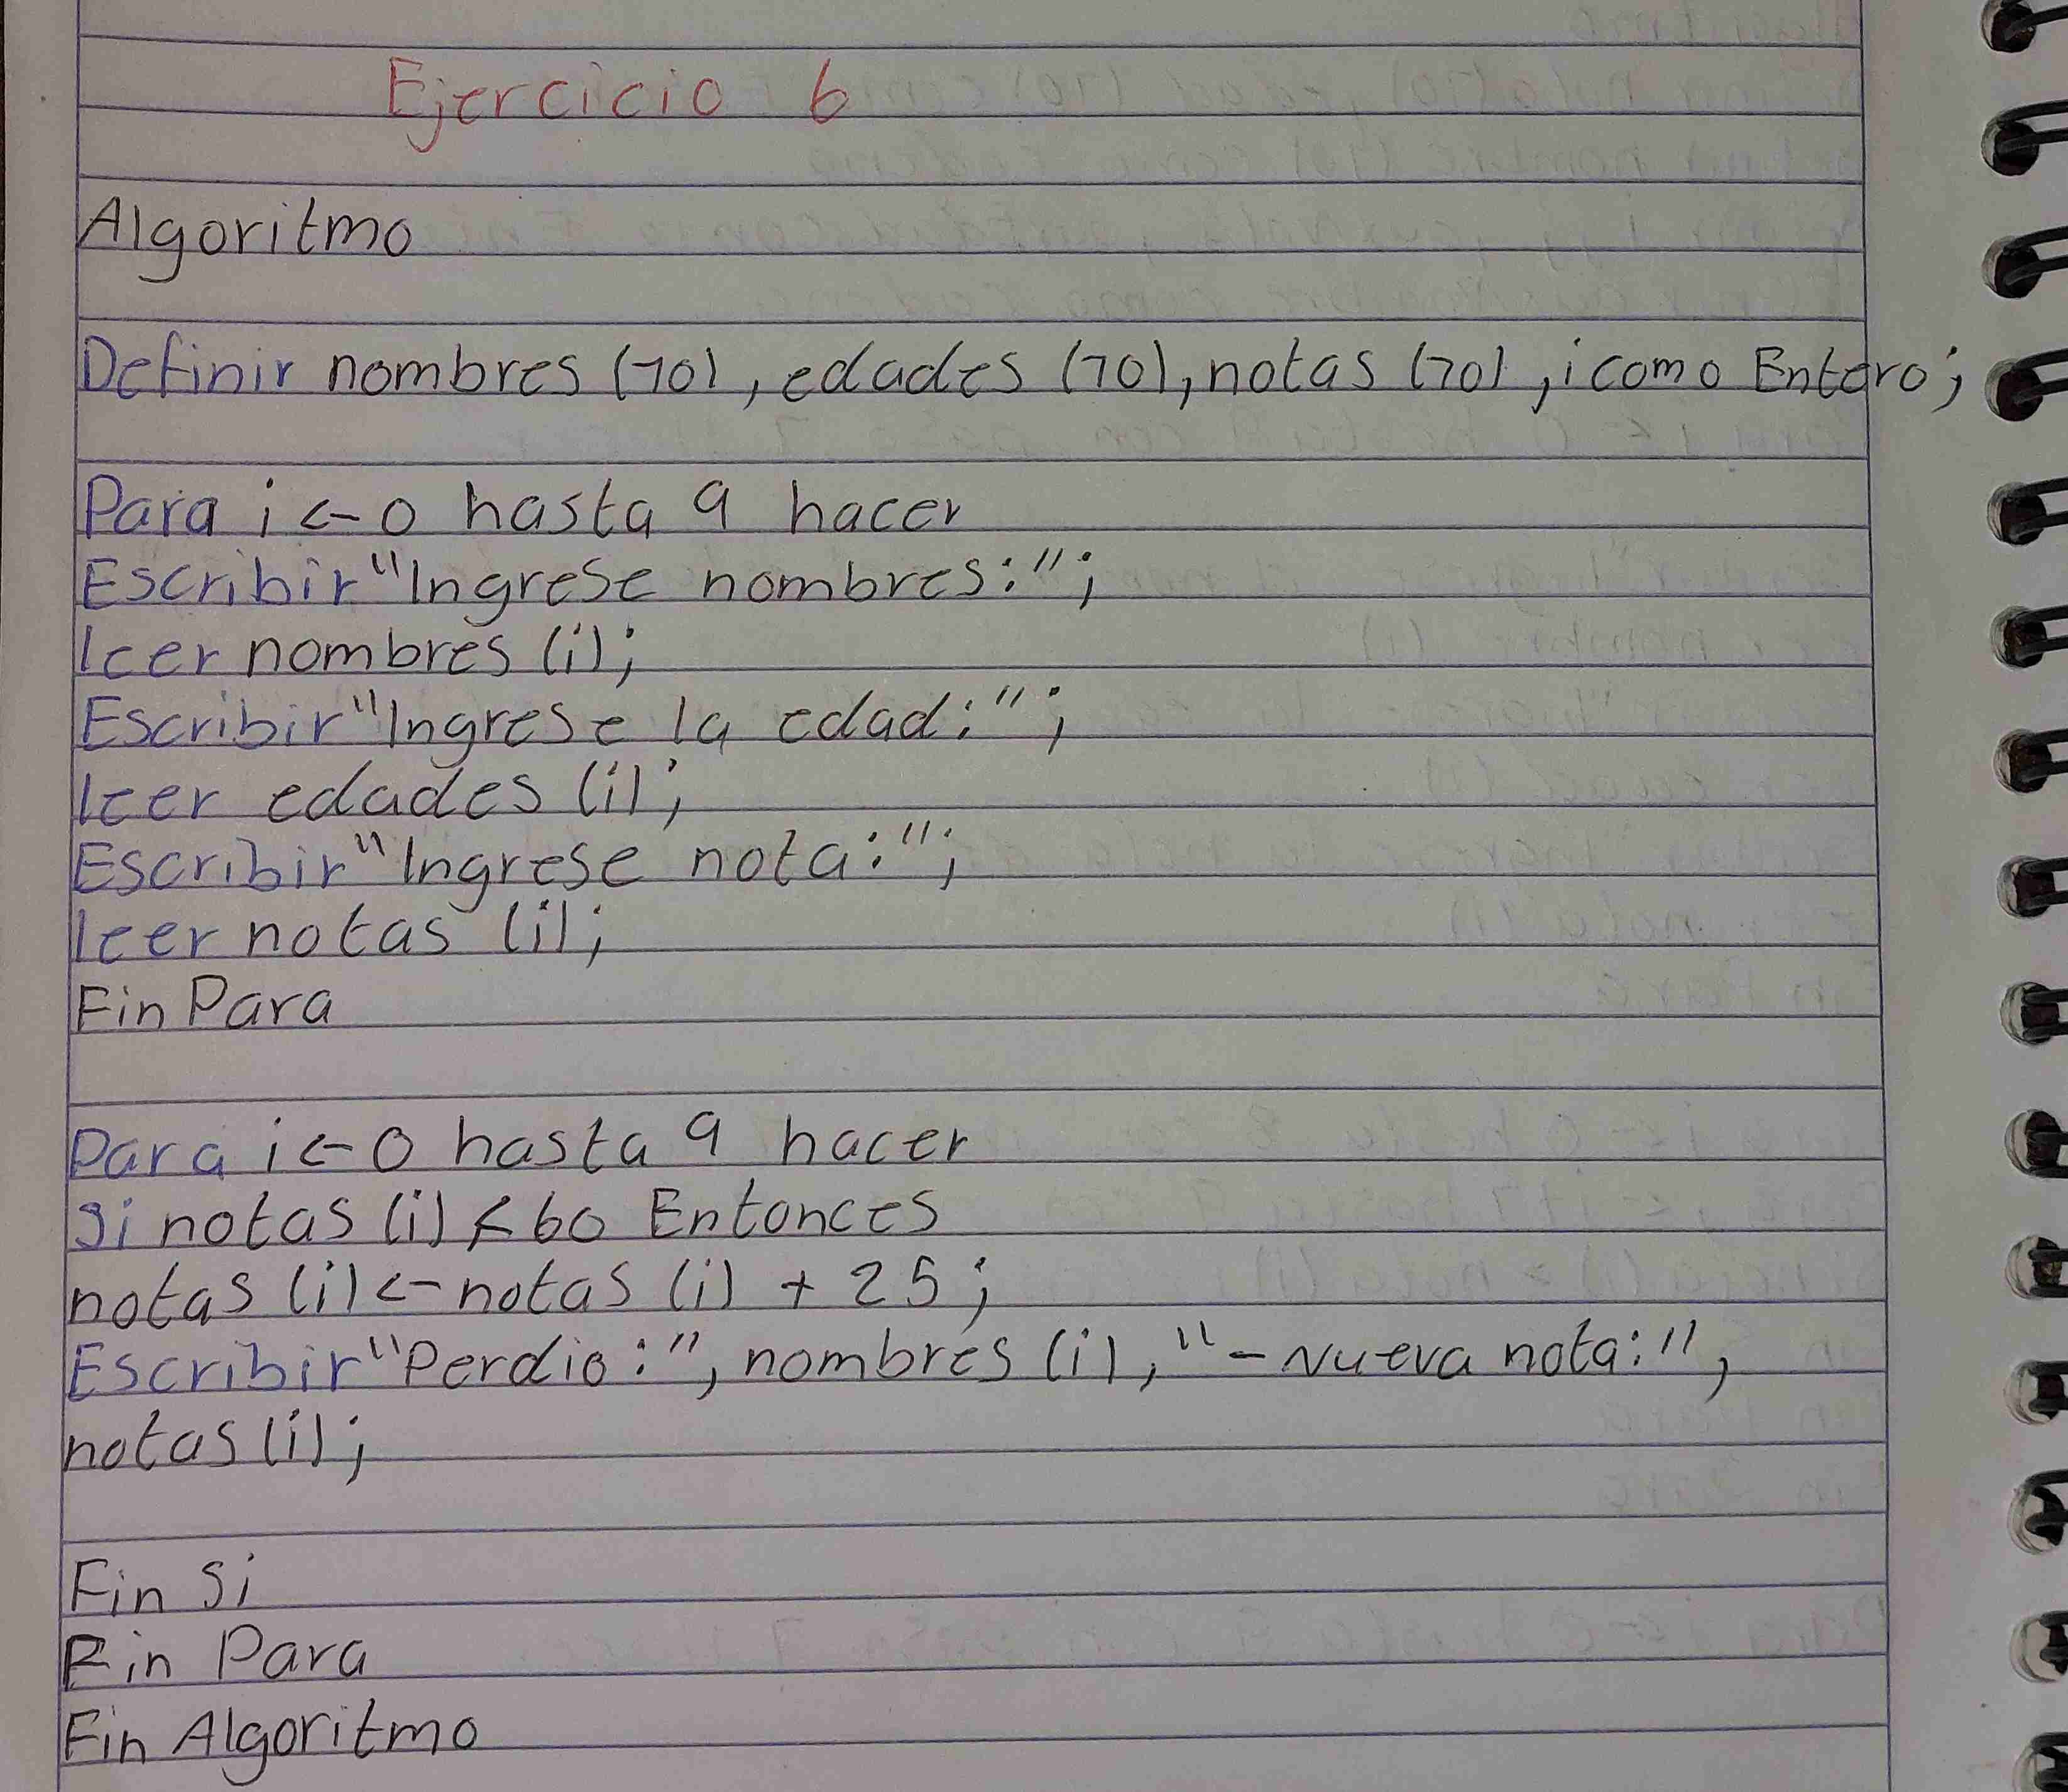 Ejercicio 6
Algoritmo
Definir nombres (10), edades (10), notas (10), i como Entero;
Para i <- 0 hasta 9 hacer
Escribir "Ingrese nombres:";
leer nombres (i);
Escribir "Ingrese la edad:";
leer edades (i);
Escribir "Ingrese nota:";
leer notas (i);
Fin Para
Para i <- 0 hasta 9 hacer
Si notas (i) < 60 Entonces
notas (i) <- notas (i) + 25;
Escribir "Perdio:", nombres (i), "- Nueva nota:",
notas (i);
Fin Si
Fin Para
Fin Algoritmo